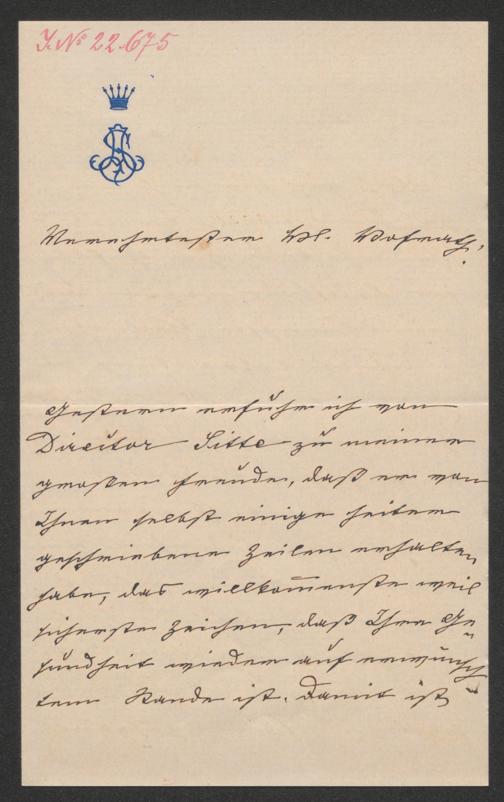 J. No 22.675
Verehrtester H. Hofrath,
Gestern erfuhr ich von
Director Sitte zu meiner
grossen Freude, daß er von
Ihnen selbst einige heiter
geschriebene Zeilen erhalten
habe, das willkom̄enste weil
sicherste Zeichen, daß Ihre Ge=
sundheit wieder auf erwünsch=
tem Stande ist. Damit ist